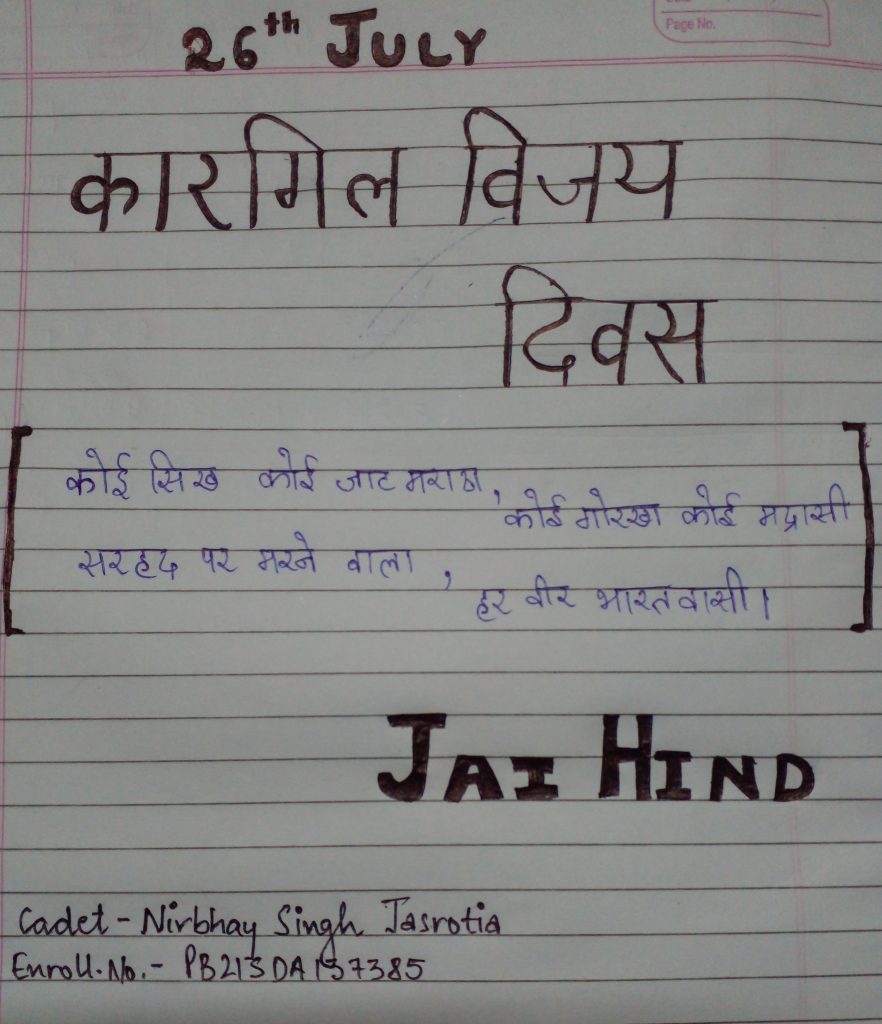 Page No.
26th JULY
कारगिल विजय
दिवस
कोई सिख कोई जाट मराठा,
कोई गोरखा कोई मद्रासी
सरहद पर मरने वाला,
हर वीर भारतवासी।
JAI HIND
Cadet - Nirbhay Singh Jasrotia
Enroll. No. - PB21SDA137385